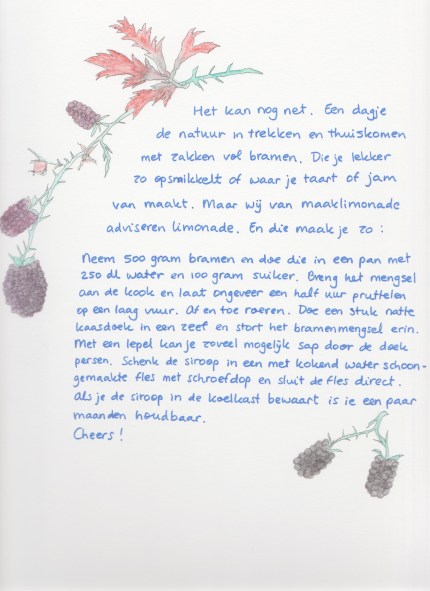 Het kan nog net. Een dagje
de natuur in trekken en thuiskomen
met zakken vol bramen. Die je lekker
zo opsmikkelt of waar je taart of jam
van maakt. Maar wij van maaklimonade
adviseren limonade. En die maak je zo:
Neem 500 gram bramen en doe die in een pan met
250 dl water en 100 gram suiker. Breng het mengsel
aan de kook en laat ongeveer een half uur pruttelen
op een laag vuur. Af en toe roeren. Doe een stuk natte
kaasdoek in een zeef en stort het bramenmengsel erin.
Met een lepel kan je zoveel mogelijk sap door de doek
persen. Schenk de siroop in een met kokend water schoon-
gemaakte fles met schroefdop en sluit de fles direct.
Als je de siroop in de koelkast bewaart is ie een paar
maanden houdbaar.
Cheers!